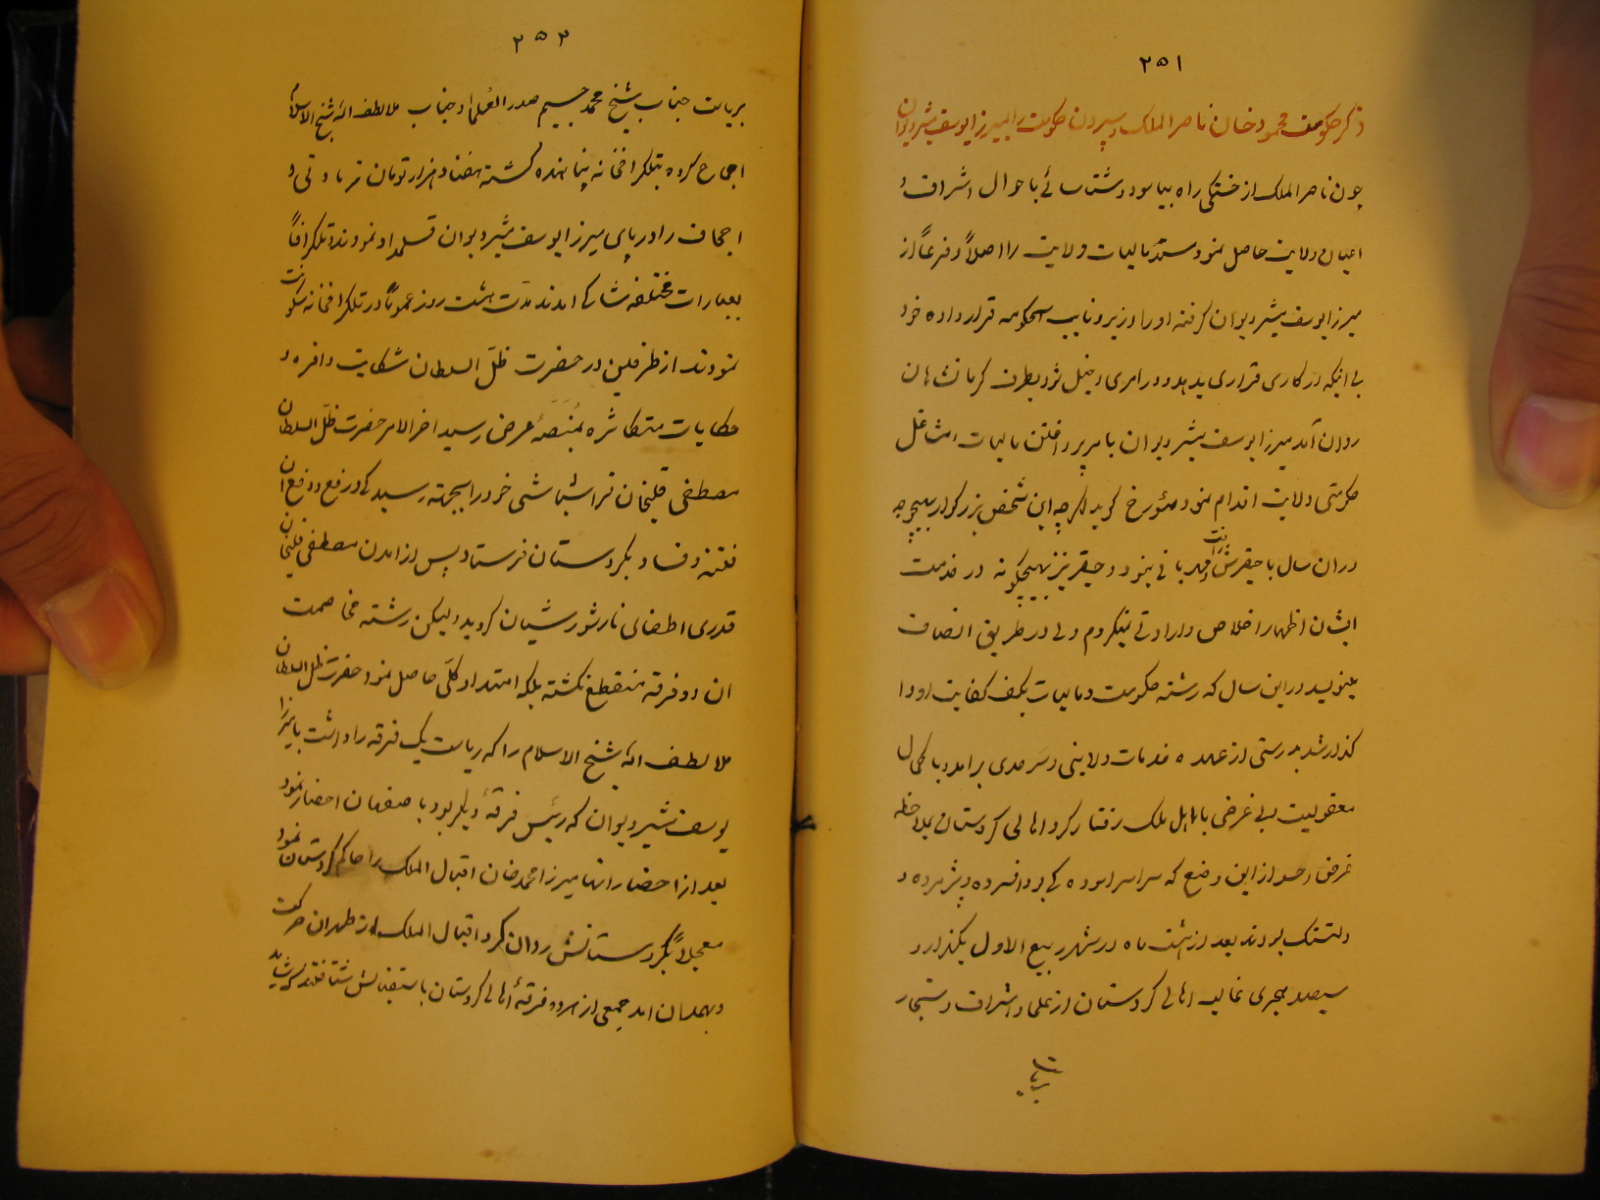 ۲۵۱
ذکر حکومت محمود خان ناصر الملک و سپردن حکومت را بمیرزا یوسف مشیر دیوان
چون ناصر الملک از خستگی راه بیاسود و شناسائے باحوال اشراف و
اعیان ولایت حاصل نمود سند مالیات ولایت را اصلاً و فرعاً از
میرزا یوسف مشیر دیوان گرفته او را وزیر و نایب الحکومه قرار داده خود
بی انکه در کاری قراری بدهد و در امری دخیل شود بطرف کرمانشاهان
روان آمد میرزا یوسف مشیر دیوان بامر پرداختن مالیات و مشاغل
حکومتی ولایت اقدام نمود مؤرخ گوید اگرچه این شخص بزرگوار بهیچوجه
در ان سال با حقیر شرافت و مهربانی ننمود و حقیر نیز بهیچگونه در خدمت
ایشان اظهار اخلاص و ارادتے نیکردم ولی در طریق انصاف
مینویسد در این سال که رشته حکومت و مالیات بکف کفایت او وا
گذار شد بدرستی از عهده خدمات ولایتی و سرحدی برامد و با کمال
معقولیت و بی غرضی با اهل ملک رفتار کرد اهالی کردستان بملاحظه
غرض و حسد از این وضع که سراسر اسوده کے بود افسرده و پژمرده و
دلتنگ بودند بعد از هشت ماه در شهر ربیع الاول یکهزار و
سیصد هجری غالب اهالی کردستان از علما و اشراف و تجار
بریاست
۲۵۲
بریاست جناب شیخ محمد جسیم صدر العلما و جناب ملا لطف الله شیخ الاسلام
اجماع کرده بتلگرافخانه پناهنده گشته هفتاد هزار تومان تر ماوتی و
اجحاف را در پای میرزا یوسف مشیر دیوان قلمداد نمودند تلگرافاً
بعبارات مختلفه شاکے امدند مدت هشت روز عموماً در تلگرافخانه سکونت
نمودند از طرفین در حضرت ظل السلطان شکایت وافره و
حکایات متکاثره بمنصهٔ عرض رسید اخر الامر حضرت ظل السلطان
مصطفی قلیخان فراشباشی خود را بجهته رسیدگے در رفع و دفع ان
فتنه و فساد بکردستان فرستاد پس از امدن مصطفی قلیخان
قدری اطفای نار شورشیان گردید ولیکن رشته مخاصمت
ان دو فرقه منقطع نگشته بلکه امتداد کلی حاصل نمود حضرت ظل السلطان
ملا لطف الله شیخ الاسلام را که ریاست یک فرقه را داشت با میرزا
یوسف مشیر دیوان که رئیس فرقهٔ دیگر بود باصفهان احضار نمود
بعد از احضار انها میرزا محمد خان اقبال الملک را حاکم کردستان نمود
معجلاً بکردستانش روان کرد اقبال الملک از طهران حرکت
و بهمدان امد جمعی از هر دو فرقهٔ اهالی کردستان باستقبالش شتافتند